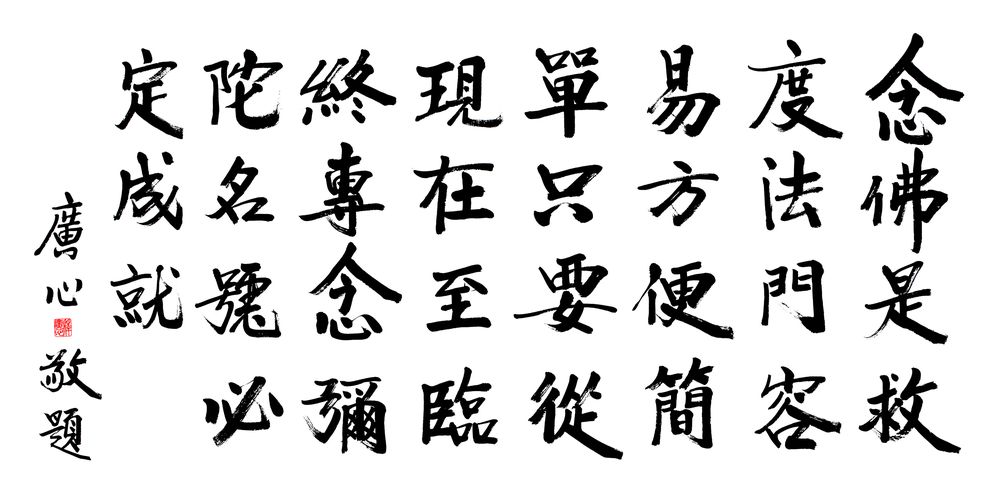 念佛是救
度法門容
易方便簡
單只要從
現在至臨
終專念彌
陀名號必
定成就
廣心敬題